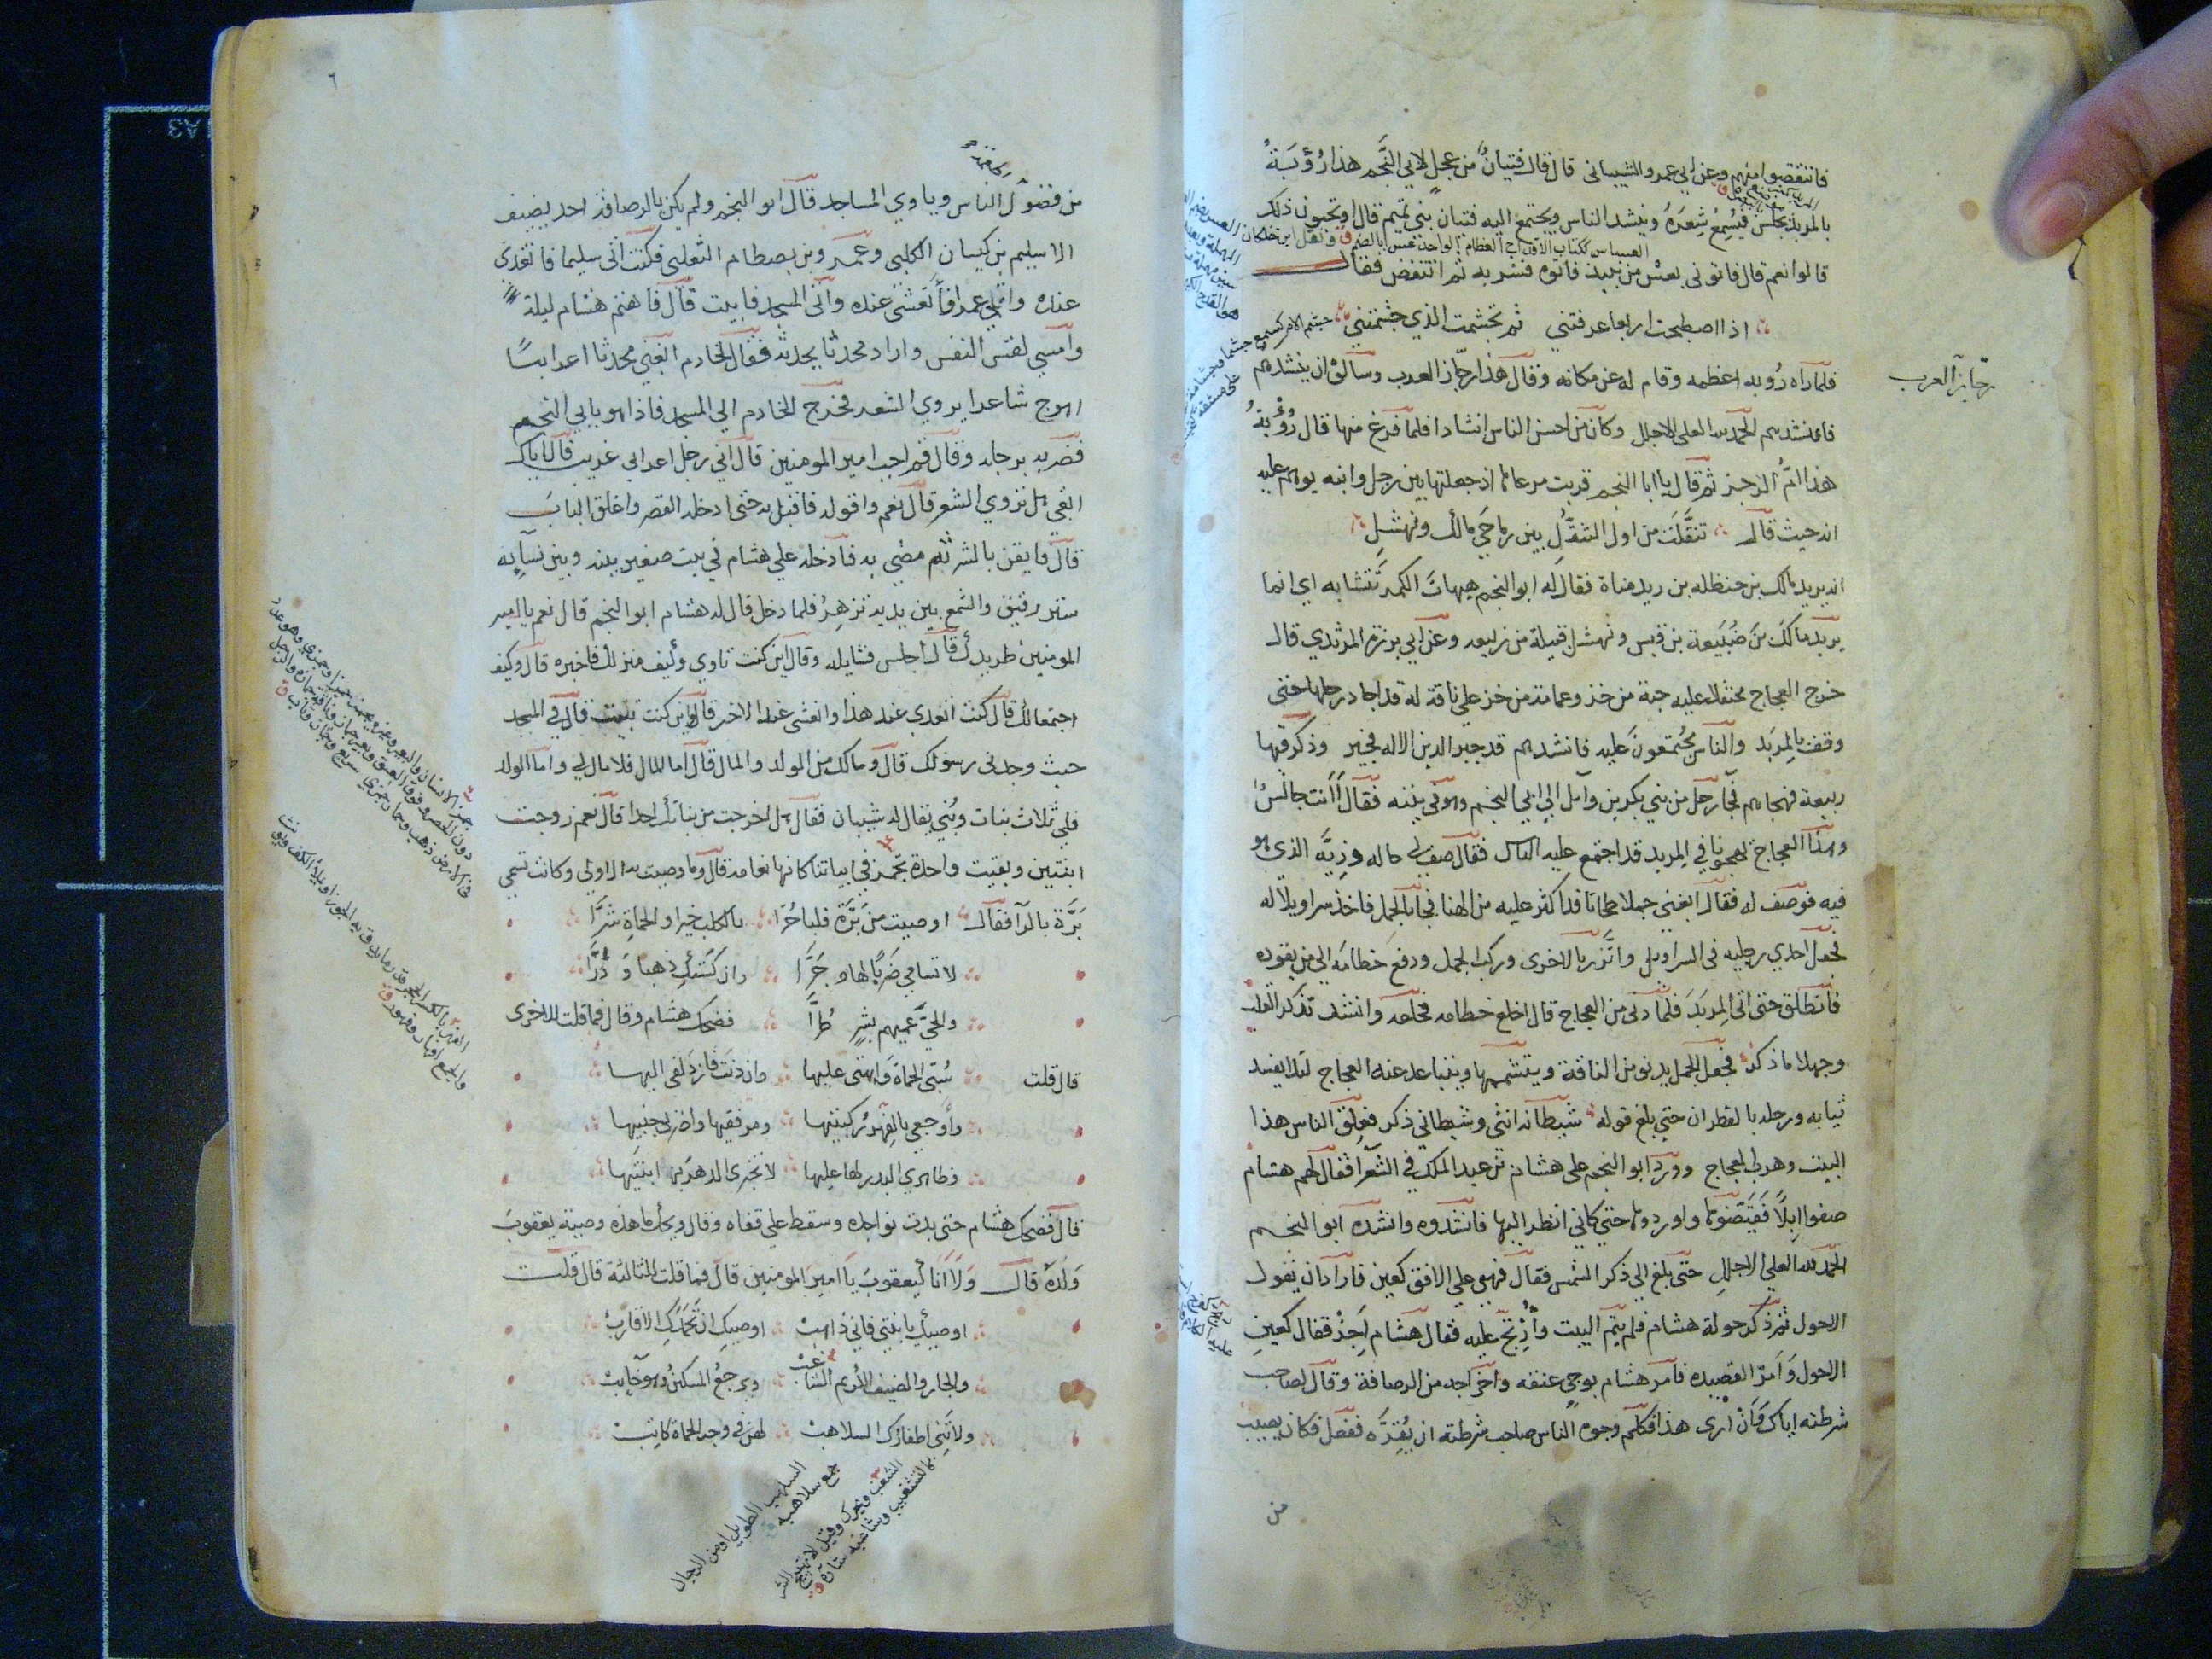 فانتقصوا منهم وعن ابي عمرو الشيباني قال قال فتيانٌ من عجلٍ لابي النَّجم هذا رُؤبَةُ
بالمربد يجلس فيُسمِعُ شِعرَهُ وينشد الناس ويجتمع اليه فتيان بني تميم قال اوتحبون ذلك
قالوا نعم قال فاتوني بعسٍّ من نبيذ فاتوه فشربه ثم انتفض فقال
اذا اصطبحت اربعا عرفتني ثم تجشمت الذي جشمتني
فلما راه رُوبه اعظمه وقام له عن مكانه وقال هذا رجّاز العرب وسالوهُ ان ينشدهم
رجّاز العرب
فانشدهم الحمد لله العلي الاجلل وكان من احسن الناس انشادا فلما فرغ منها قال رُؤبةُ
هذا امُّ الرجز ثم قال يا ابا النجم قربت مرعاها اذ جعلتها بين رجل وابنه يوهم عليه
انه حيث قال تنقَّلَت من اول التنقُّلِ بين رماحَي مالك ونهشلِ
انه يريد مالك بن حنظله بن زيد مناة فقال له ابو النجم هيهات الكمر تتشابه اي انما
يريد مالك بن ضُبَيعة بن قيس ونهشل قبيلة من ربيعه وعن ابي برزة المرثدي قال
خرج العجاج محتفلا عليه جبة من خز وعمامة من خز علي ناقة له قد اجاد رحلها حتى
وقف بالمِربَد والناس مُجتمعونَ عليه فانشدهم قد جبر الدين الاله فجبر وذكر فيها
ربيعة فهجاهم فجآ رجل من بني بكر بن وآيل الي ابي النجم وهو في بيته فقال أأنت جالسٌ
وهذا العجاج يهجونا في المِربد قد اجتمع عليه الناس فقال صف لي حاله وزِيَّه الذي هو
فيه فوصف له فقال ابغني جملا طحانا قد اكثر عليه من الهنا فجآ بالجمل فاخذ سراويلا له
فجعل احدي رجليه في السراويل واتَّزر بالاخرى وركب الجمل ودفع خطامَه الي من يقوده
فانطلق حتى اتى المِربَدَ فلما دنى من العجاج قال اخلع خطامه فخلعه وانشد تذكر القلب
وجهلا ما ذكر فجعل الجمل يدنو من الناقة ويتشممها ويتباعد عنه العجاج لئلا يفسد
ثيابه ورحله بالقطران حتى بلغ قوله شيطانه انثى وشيطاني ذكر فعلق الناس هذا
البيت وهرب العجاج وورد ابو النجم على هشام بن عبد الملك في الشعرآ فقال لهم هشام
صفوا ابلاً فقيّضوها واوردوها حتى كاني انظر اليها فانشدوه وانشده ابو النجم
الحمد لله العلي الاجلل حتى بلغ الي ذكر الشمس فقال فهي علي الافق كعين فاراد ان يقول
الاحول ثم ذكر حولة هشام فلم يتم البيت وأُرتج عليه فقال هشام أَجِزْ فقال كعينِ
الاحول وَامَرّ القصيده فامر هشام بوجئ عنقه واخراجه من الرصافة وقال لصاحب
شرطته اياك وَأن ارى هذا فكلم وجوه الناس صاحب شرطته ان يُقِرَّه ففعل فكان يصيب
من
٦
من فضول الناس وياوي المساجد قال ابو النجم ولم يكن بالرصافة احد يضيف
الا سليم بن كيسان الكلبي وعمرو بن بصطام الثعلبي فكنت آتي سليما فاتغدى
عنده واتي عمرا فأتعشى عنده وآتي المسجد فابيت قال فاهتم هشام ليلة
وامسى لقس النفس واراد محدثا يحدثه فقال لخادم ابغني محدثا اعرابيًا
اهوج شاعرا يروي الشعر فخرج الخادم الي المسجد فاذا هو بابي النجم
فضربه برجله وقال قم اجب امير المومنين قال اني رجل اعرابي غريب قال اياك
ابغي هل تروي الشعر قال نعم واقوله فاقبل به حتى ادخله القصر واغلق الباب
قال فايقن بالشر ثم مضى به فادخله علي هشام في بيت صغير بينه وبين نسآيه
ستر رقيق والشمع بين يديه تزهر فلما دخل قال له هشام ابو النجم قال نعم يا امير
المومنين طريدك قال اجلس فسايله وقال اين كنت تاوي وكيف منزلك فاخبره قال وكيف
اجتمعا لك قال كنت اتغدى عند هذا واتعشى عند الاخر قال واين كنت تبيت قال في المسجد
حيث وجدني رسولك قال وما لك من الولد والمال قال اما المال فلا مال لي واما الولد
فلي ثلاث بنات وبُني يقال له شيبان فقال هل اخرجت من بناتك احدا قال نعم زوجت
ابنتين وبقيت واحدة تجمز في ابياتنا كانها نعامه قال وما وصيت به الاولى وكانت تسمي
بَرَّة بالرآ فقال اوصيت من بَرَّة قلبا حُرّا بالكلب خيرا والحماةِ شرَّا
لا تسامي ضَربًا لها وجَرَّا وان كسَتكِ ذهبا وَدُرَّا
والحيِّ عُميهم بشرٍ طُرَّا فضحك هشام وقال فما قلت للاخرى
قال قلت سُبّي الحماة وَابهتى عليها وان دَنَت فازدلفي اليها
وأوجعي بالفِهر رُكبتيها ومرفقيها واضربي جنبيها
وظاهري البدر لها عليها لا تخبرى الدهر بن ابنتيها
قال فضحك هشام حتى بدت نواجذه وسقط علي قفاه وقال ويحك ما هذه وصية يعقوبَ
وَلدَهُ قال وَلا أنا كيعقوبَ يا امير المومنين قال فما قلت للثالثة قال قلت
اوصيك يا بنتي فاني ذاهبْ اوصيكِ ان تحمدَكِ الاقاربْ
والجار والضيف الكريم الساغبْ ويرجعُ المسكين وهو خآيبْ
ولا تَنِي اظفارُك السلاهبْ لهن في وجه الحماة كاتِبْ
السلهب الطويل او من الرجال
جمع سلاهبه